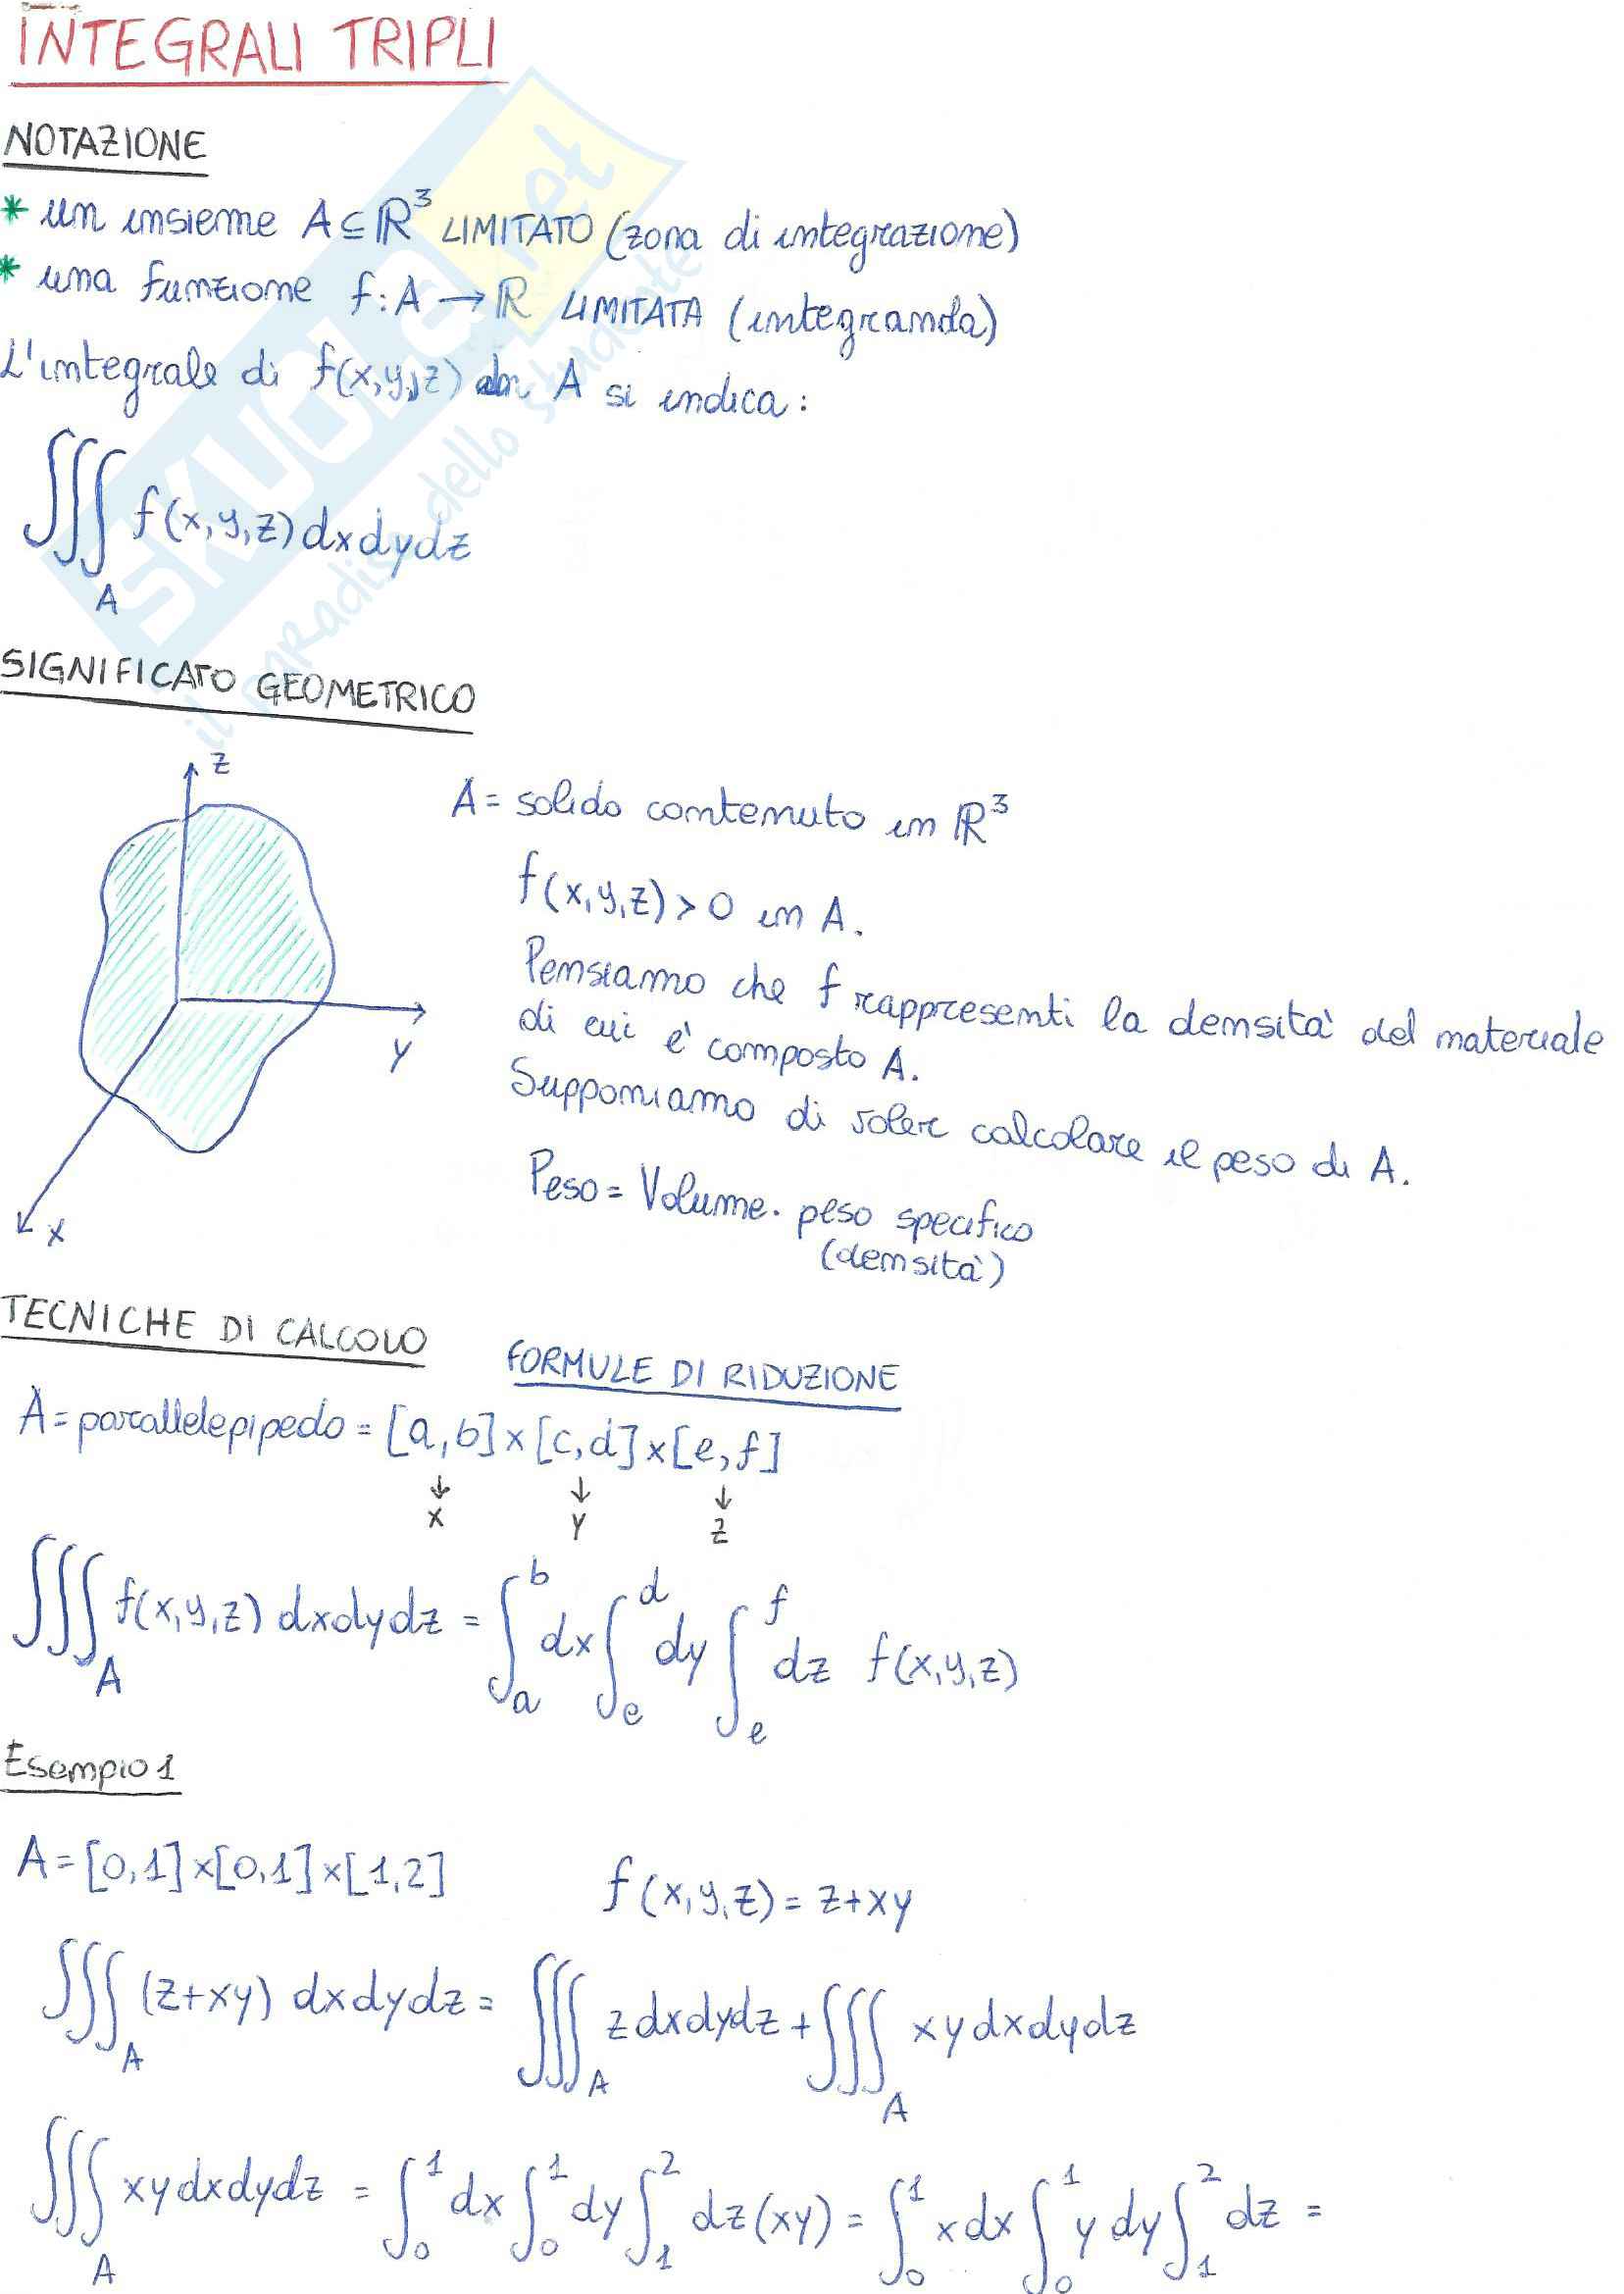 INTEGRALI TRIPLI
NOTAZIONE
* un insieme A ⊆ ℝ³ LIMITATO (zona di integrazione)
* una funzione f: A → ℝ LIMITATA (integranda)
L'integrale di f(x,y,z) in A si indica:
∭_A f(x,y,z) dxdydz
SIGNIFICATO GEOMETRICO
z
y
x
A = solido contenuto in ℝ³
f(x,y,z) > 0 in A.
Pensiamo che f rappresenti la densità del materiale
di cui è composto A.
Supponiamo di voler calcolare il peso di A.
Peso = Volume · peso specifico
(densità)
TECNICHE DI CALCOLO
FORMULE DI RIDUZIONE
A = parallelepipedo = [a,b] × [c,d] × [e,f]
↓ ↓ ↓
x y z
∭_A f(x,y,z) dxdydz = ∫_a^b dx ∫_e^d dy ∫_e^f dz f(x,y,z)
Esempio 1
A = [0,1] × [0,1] × [1,2] f(x,y,z) = z+xy
∭_A (z+xy) dxdydz = ∭_A z dxdydz + ∭_A xy dxdydz
∭_A xy dxdydz = ∫_0^1 dx ∫_0^1 dy ∫_1^2 dz (xy) = ∫_0^1 x dx ∫_0^1 y dy ∫_1^2 dz =
SKUOLA.net
il paradiso dello studente